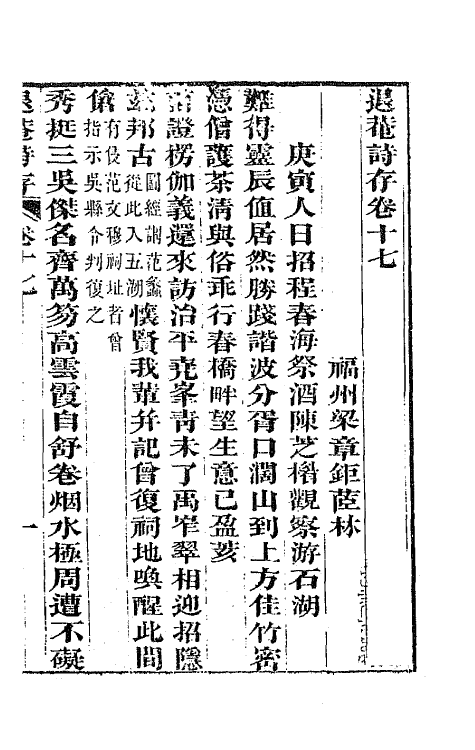 退菴詩存卷十七
福州梁章鉅茝林
庚寅人日招程春海祭酒陳芝楣觀察游石湖
難得靈辰值居然勝踐諧波分胥口濶山到上方佳竹密
憑僧護茶清與俗乖行春橋畔望生意已盈荄
話證楞伽義還來訪治平堯峯靑未了禹穸翠相迎招隱
邦古圖經謂范蠡從此入五湖懷賢我輩幷記曾復祠地喚醒此間
傖有侵范文穆祠址者曾指示吳縣令判復之
秀挺三吳傑名齊萬笏高雲霞自舒卷烟水極周遭不礙
退菴詩存
卷十七
一